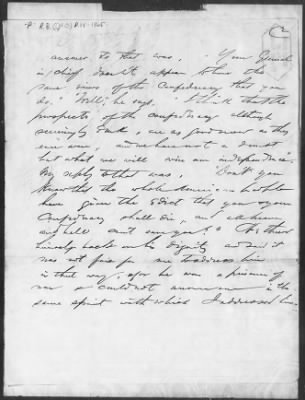 answer to that was, "Your General
in Chief doesn't appear to have the
same views of the Confederacy that you
do." "Well," he says, "I think that the
prospects of the confederacy although
seemingly dark, are as good now as they
ever were, and we have not a doubt
but what we will win our independence."
My reply to that was, "Don't you
know that the whole American people
have given the edict that you or your
Confederacy shall die, and all heaven
and hell can't save you?" He threw
himself back on his dignity and said it
was not fair for me to address him
in that way, for he was a prisoner of
war & could not answer in the
same spirit with which I addressed him.